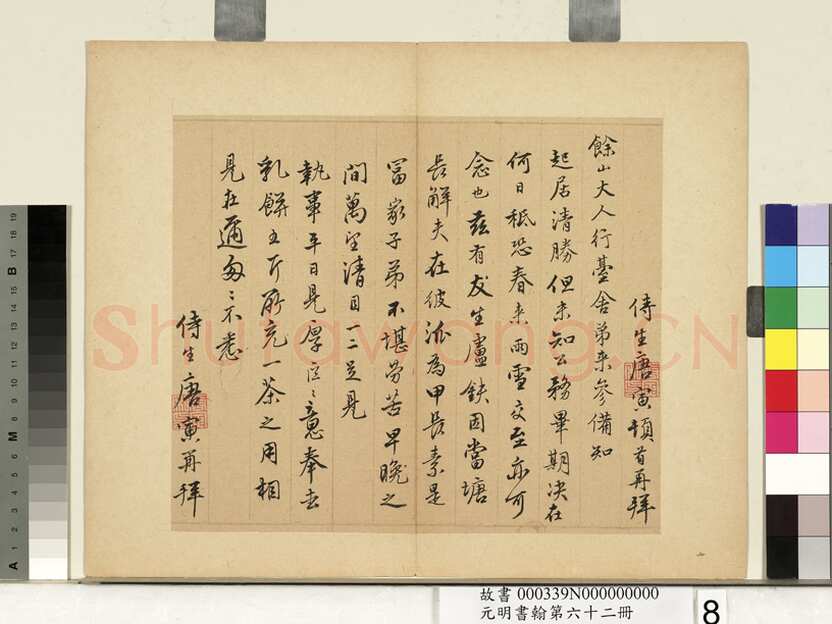 侍生唐寅頓首再拜
餘山大人行臺舍弟來參備知
起居清勝但未知公務畢期決在
何日秪恐春來雨雪交至亦可
念也茲有友生盧鈇因當塘
長解夫在彼派為甲長素是
富家子弟不堪勞苦早晚之
間萬望清目一二足見
執事平日見厚區〻意奉去
乳餅五斤所充一茶之用相
見在邇匆〻不悉
侍生唐寅再拜
Shufawang.CN
故書 000339N000000000
元明書翰第六十二冊
8
A 1 2 3 4 5 6 M 8 9 10 11 12 13 14 15 B 17 18 19